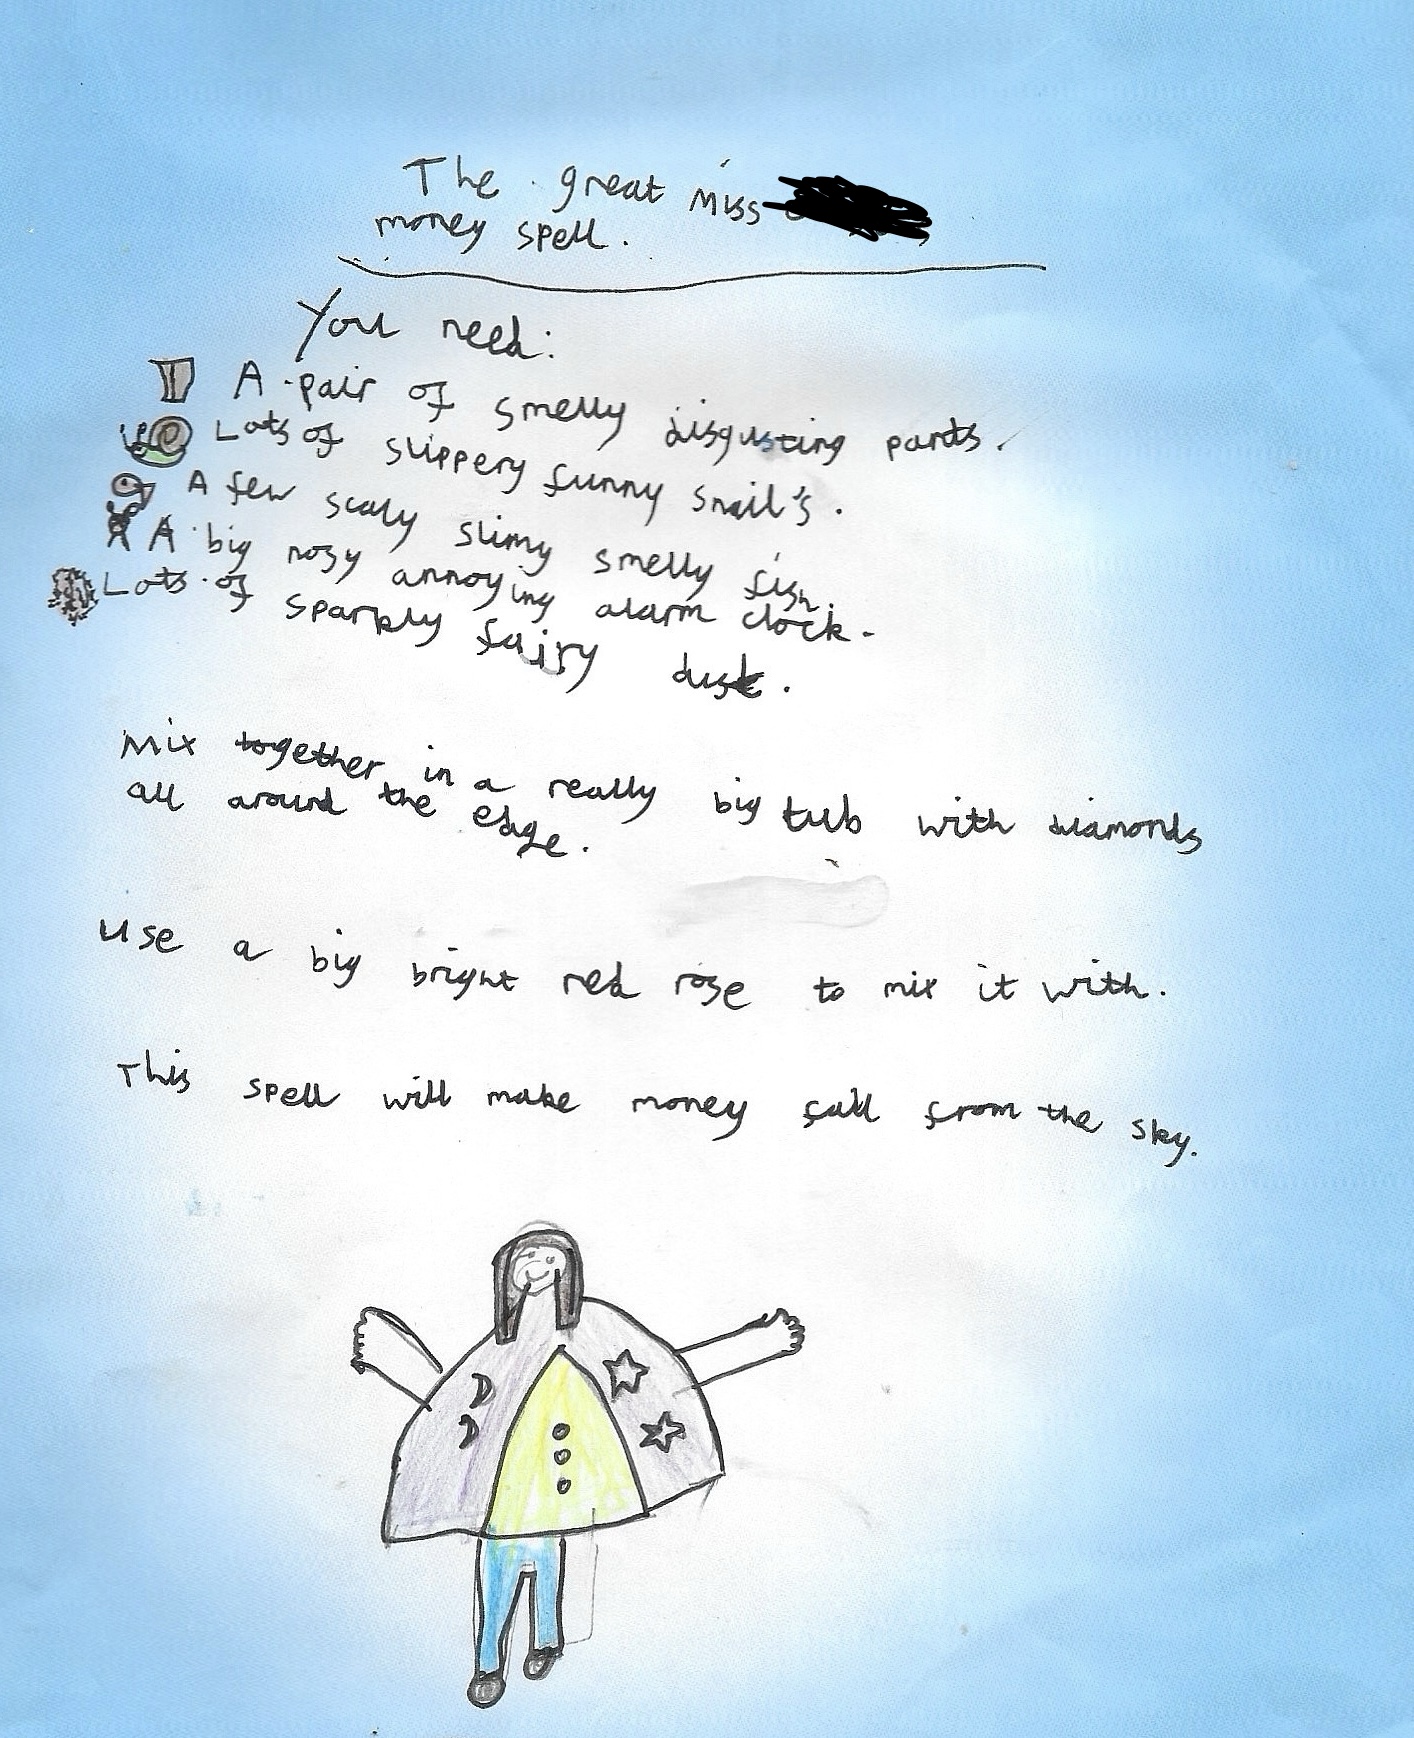 The great miss
money spell.
You need:
A pair of smelly disgusting pants.
Lots of slippery funny snail's.
A few scaly slimy smelly fish.
A big nosy annoying alarm clock.
Lots of sparkly fairy dust.
Mix together in a really big tub with diamonds
all around the edge.
Use a big bright red rose to mix it with.
This spell will make money fall from the sky.